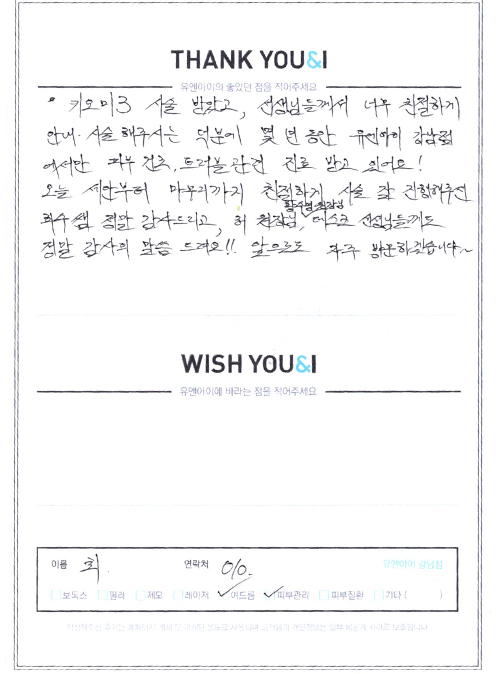 THANK YOU&I
유앤아이의 좋았던 점을 적어주세요
키오머3 시술 받았고, 선생님들께서 너무 친절하게
안내·시술 해주시는 덕분에 몇 년 동안 유앤아이 강남점
에서만 피부 건조, 트러블 관련 진료 받고 있어요!
오늘 세안부터 마무리까지 친절하게 시술 잘 진행해주신
희수쌤 정말 감사드리고, 원장님, 데스크 선생님들께도
정말 감사의 말씀 드려요!! 앞으로도 자주 방문하겠습니다~
WISH YOU&I
유앤아이에 바라는 점을 적어주세요
이름 최 연락처 010. 유앤아이 강남점
보톡스 필러 제모 레이저 여드름 피부관리 피부질환 기타 ( )